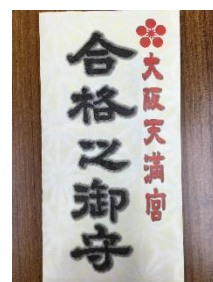 大阪天満宮
合格之御守